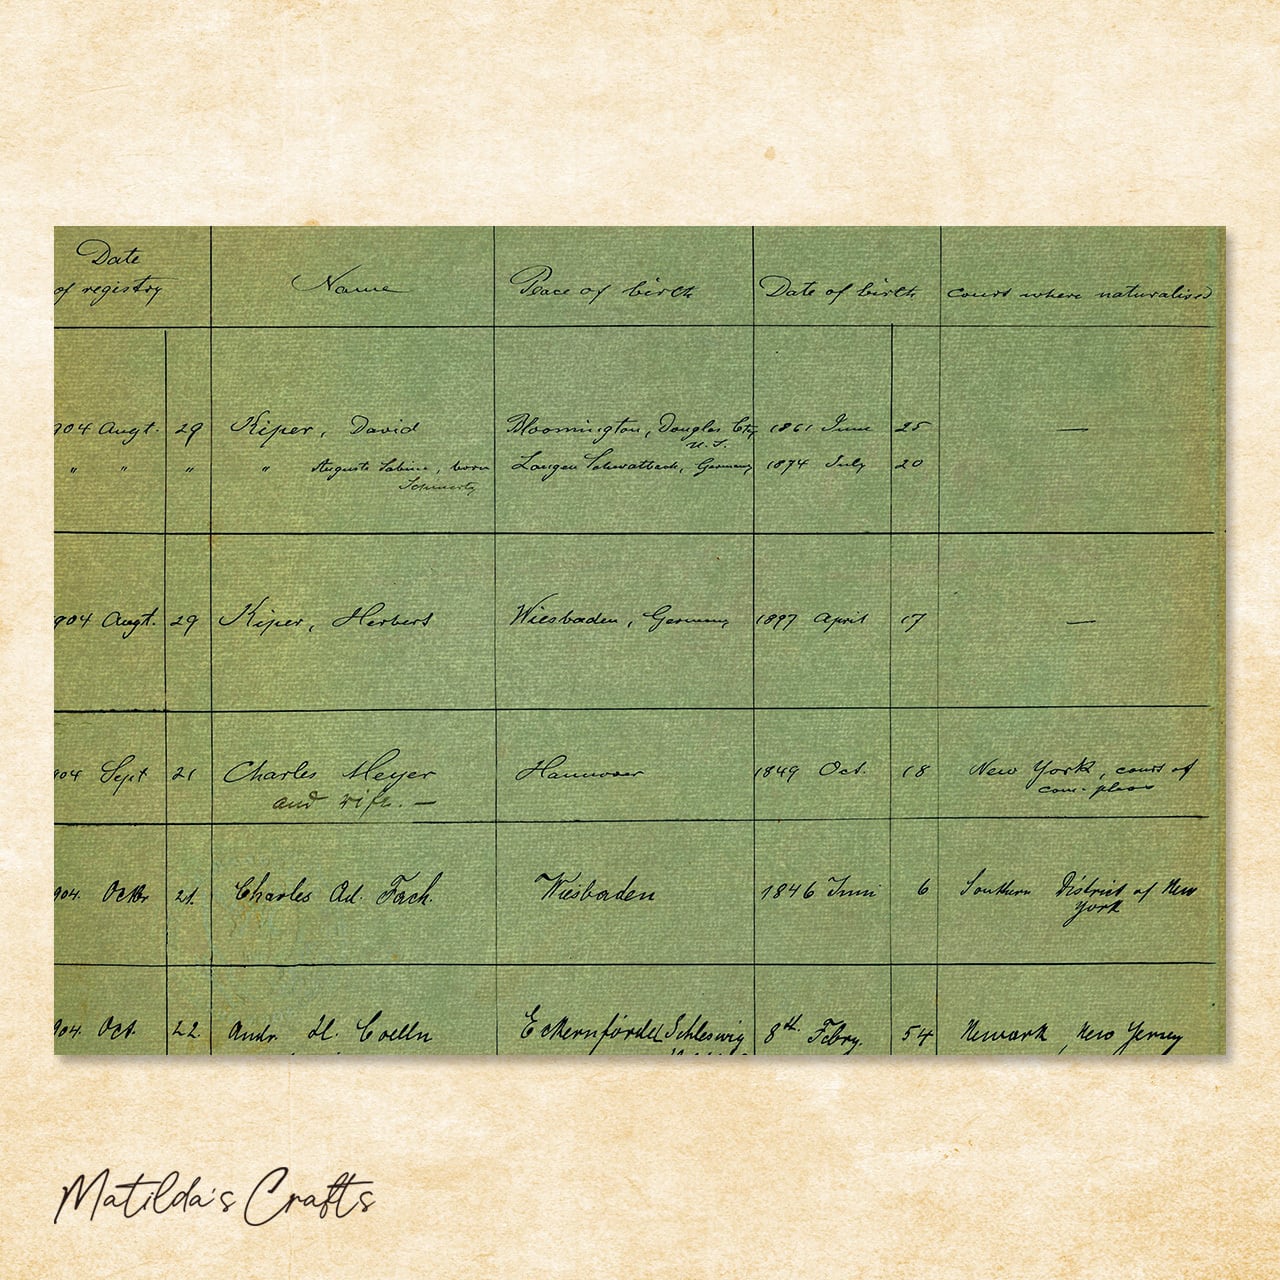 Date
of registry
Name
Place of birth
Date of birth
court where naturalised
904 Augt. 29 Kiper, David Bloomington, Douglas Cty, 1861 June 25 —
U.S.
" " " " Auguste Sabine, born Langen Schwalbach, Germany 1874 July 20
Schwartz
904 Augt. 29 Kiper, Herbert Wiesbaden, Germany 1897 April 17 —
904 Sept 21 Charles Meyer Hannover 1849 Oct. 18 New York, court of
and wife. — com. pleas
904. Octbr 21. Charles Ad. Fach. Wiesbaden 1846 Juni 6 Southern District of New
York
904. Oct. 22 Andr. H. Coelln Eckernförde Schleswig 8th. Febry. 54 Newark, New Yersey
Matilda's Crafts